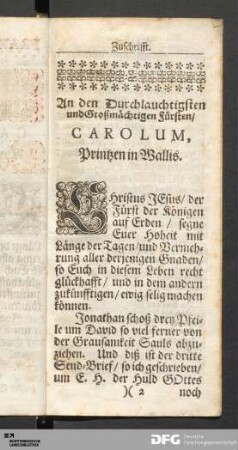 Zuschrifft.
An den Durchlauchtigsten
und Großmächtigen Fürsten/
CAROLUM,
Printzen in Wallis.
CHristus JEsus/ der
Fürst der Königen
auf Erden/ segne
Euer Hoheit mit
Länge der Tagen/ und Vermeh-
rung aller derjenigen Gnaden/
so Euch in diesem Leben recht
glückhafft/ und in dem andern
zukünfftigen/ ewig selig machen
können.
Jonathan schoß drey Pfei-
le um David so viel ferner von
der Grausamkeit Sauls abzu-
ziehen. Und diß ist der dritte
Send-Brief/ so ich geschrieben/
um E. H. der Huld GOttes
)( 2 noch
DFG Deutsche
Forschungsgemeinschaft